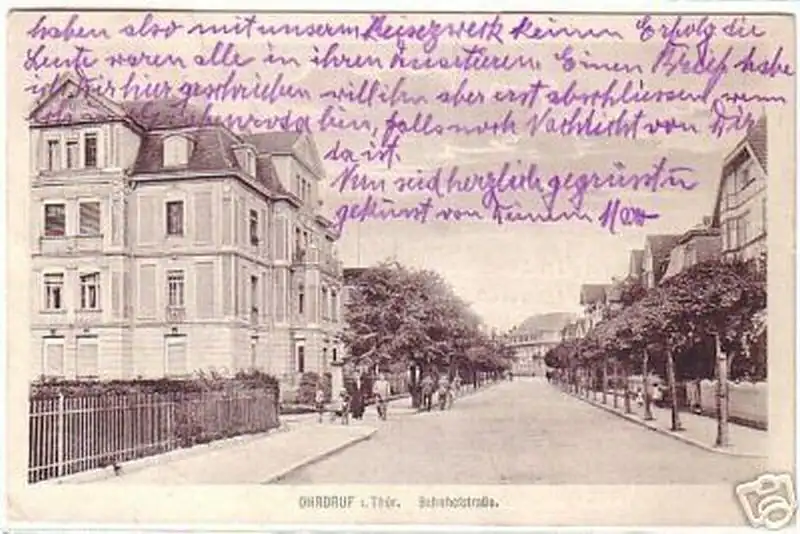 haben also mit unserm Reisezwerk keinen Erfolg die
Leute waren alle in ihren Quartieren Einen Brief habe
ich Dir hier geschrieben will ihn aber erst abschliessen, wenn
ich in bin, falls noch Nachricht von Dir
da ist.
Nun seid herzlich gegrüsst u
geküsst von Deinem Max
OHRDRUF i. Thür. Bahnhofstraße.